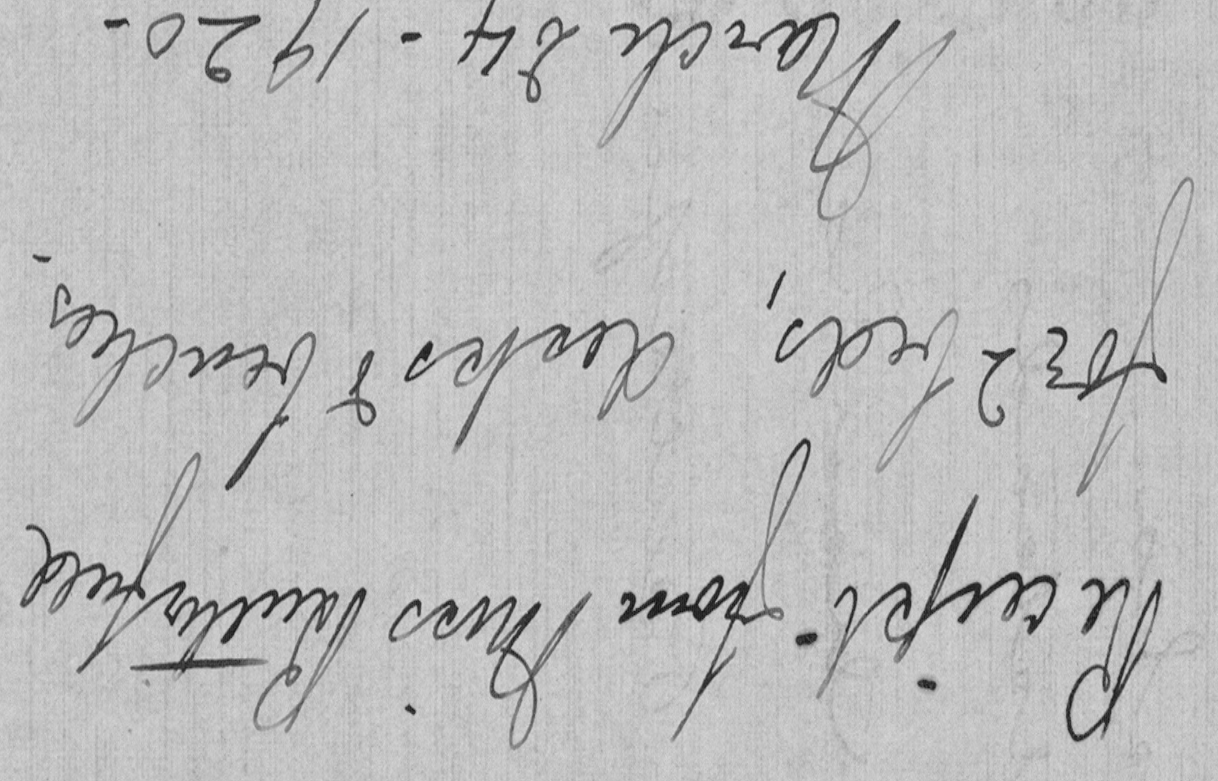 Receipt from Miss Butterfield
for 2 beds, desks & benches.
March 24 - 1920-